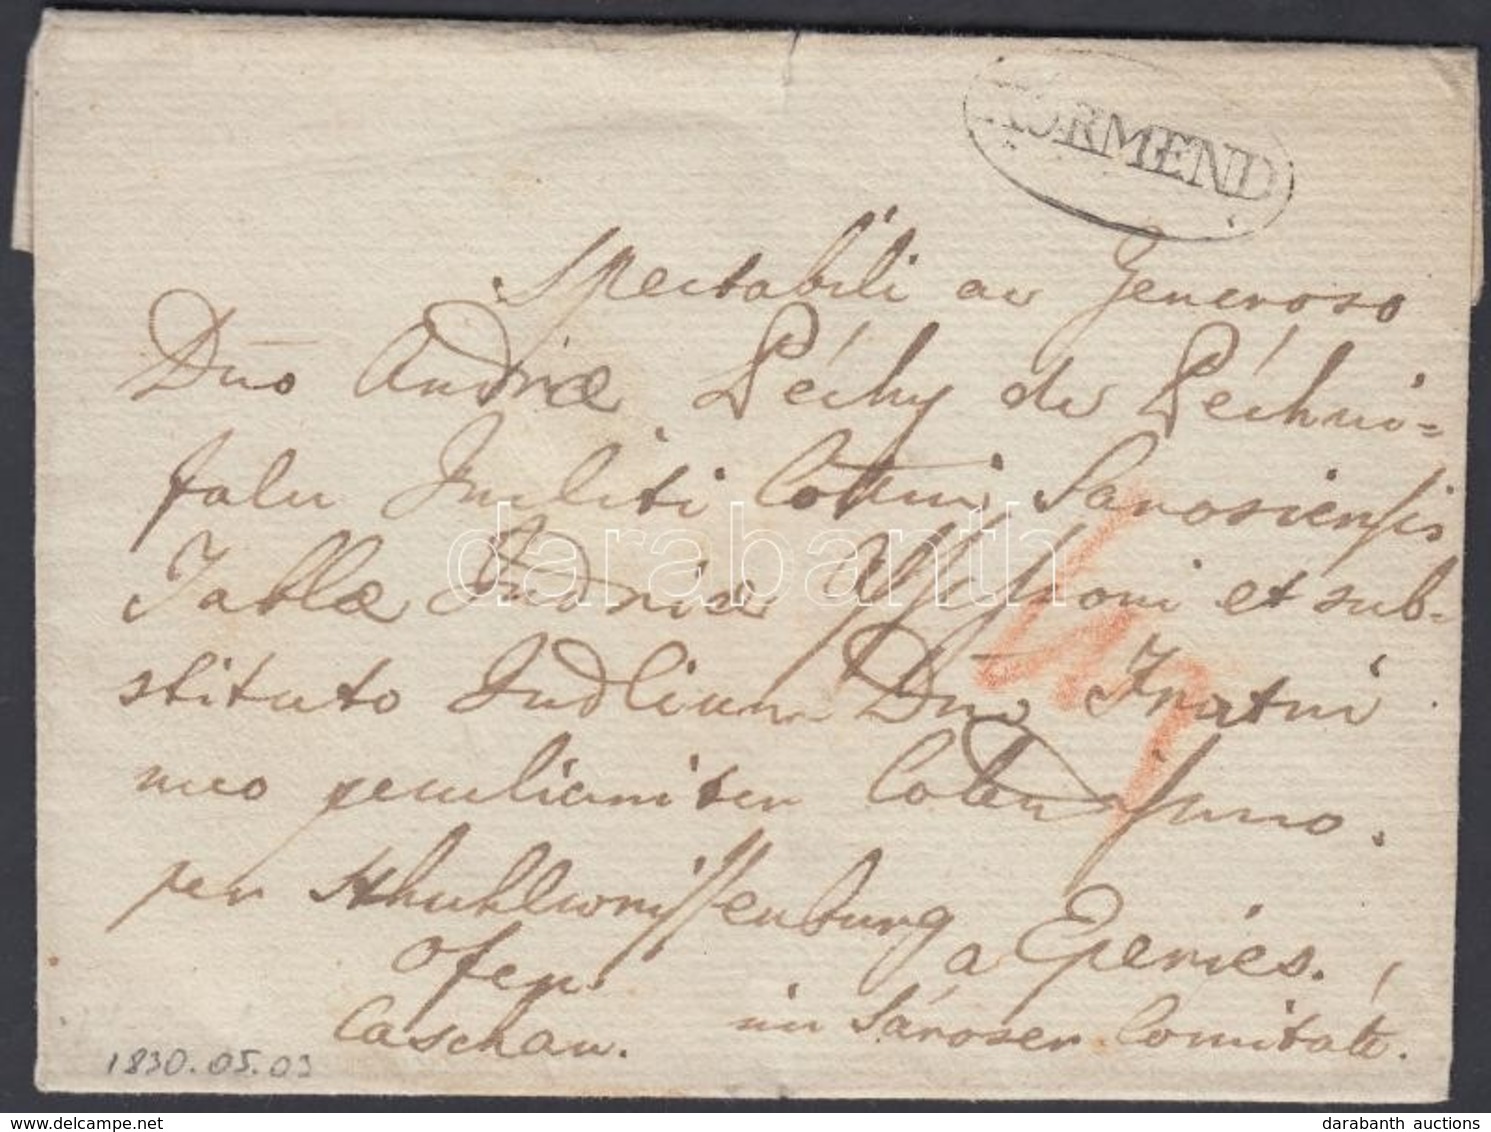 KÖRMEND
Spectabili ac Generoso
Dno Andreæ Péchy de Péchuj=
falu Incliti Cottui Sarosiensis
Tablæ Judriæ Assessori et sub=
stituto Judlium Dno Fratri
meo peculiariter Colendissimo.
per Stuhlweissenburg a Eperies.
Ofen.
Caschau. im Sároser Comitate.
1830.05.03
darabanth
delcampe.net
darabanth auctions